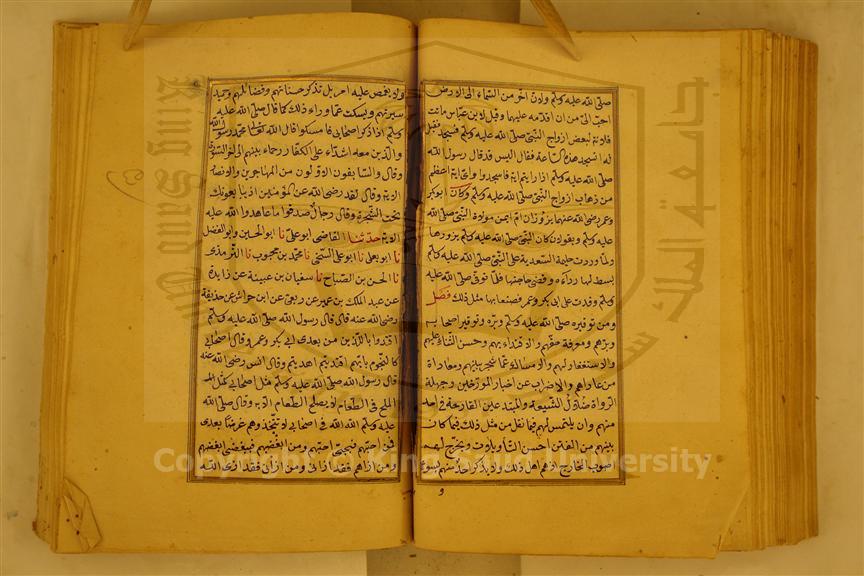 صلى الله عليه وسلم ولان اخر من السماء الى الارض
احب الى من ان اقدمه عليهما وقيل لابن عباس ماتت
فلانة لبعض ازواج النبي صلى الله عليه وسلم فسجد فقيل
له اتسجد هذه الساعة فقال اليس قد قال رسول الله
صلى الله عليه وسلم اذا رايتم اية فاسجدوا واى اية اعظم
من ذهاب ازواج النبي صلى الله عليه وسلم وكان ابو بكر
وعمر رضي الله عنهما يزوران ام ايمن مولاة النبي صلى الله
عليه وسلم ويقولان كان النبي صلى الله عليه وسلم يزورها
ولما وردت حليمة السعدية على النبي صلى الله عليه وسلم
بسط لها رداءه وقضى حاجتها فلما توفى صلى الله عليه
وسلم وفدت على ابى بكر وعمر فصنعا بها مثل ذلك فصل
ومن توقيره صلى الله عليه وسلم وبره توقير اصحابه
وبرهم ومعرفة حقهم والاقتداء بهم وحسن الثناء عليهم
والاستغفار لهم والامساك عما شجر بينهم ومعاداة
من عاداهم والاضراب عن اخبار المؤرخين وجهلة
الرواة وضلال الشيعة والمبتدعين القادحة في احد
منهم وان يلتمس لهم فيما نقل من مثل ذلك فيما كان
بينهم من الفتن احسن التاويلات ويخرج لهم
اصوب المخارج اذ هم اهل ذلك ولا يذكر احد منهم بسوء
و
ولا يغمص عليه امر بل تذكر حسناتهم وفضائلهم وحميد
سيرتهم ويسكت عما وراء ذلك كما قال صلى الله عليه
وسلم اذا ذكر اصحابى فامسكوا قال الله تعالى محمد رسول الله
والذين معه اشداء على الكفار رحماء بينهم الى اخر السورة
وقال والسابقون الاولون من المهاجرين والانصار
الاية وقال لقد رضي الله عن المؤمنين اذ يبايعونك
تحت الشجرة وقال رجال صدقوا ما عاهدوا الله عليه
الاية حدثنا القاضى ابو على نا ابو الحسين وابو الفضل
نا ابو يعلى نا ابو على السنجى نا محمد بن محبوب نا الترمذى
نا الحسن بن الصباح نا سفيان بن عيينة عن زايدة
عن عبد الملك بن عمير عن ربعى عن ابن حراش عن حذيفة
رضي الله عنه قال قال رسول الله صلى الله عليه وسلم
اقتدوا بالذين من بعدى ابى بكر وعمر وقال اصحابى
كالنجوم بايهم اقتديتم اهديتم وقال انس رضي الله عنه
قال رسول الله صلى الله عليه وسلم مثل اصحابى كمثل
الملح في الطعام لا يصلح الطعام الا به وقال صلى الله
عليه وسلم الله الله في اصحابى لا تتخذوهم غرضا بعدى
فمن احبهم فبحبى احبهم ومن ابغضهم فببغضى ابغضهم
ومن اذاهم فقد اذانى ومن اذانى فقد اذى الله
جامعة الملك سعود
King Saud University
Copyright © King Saud University